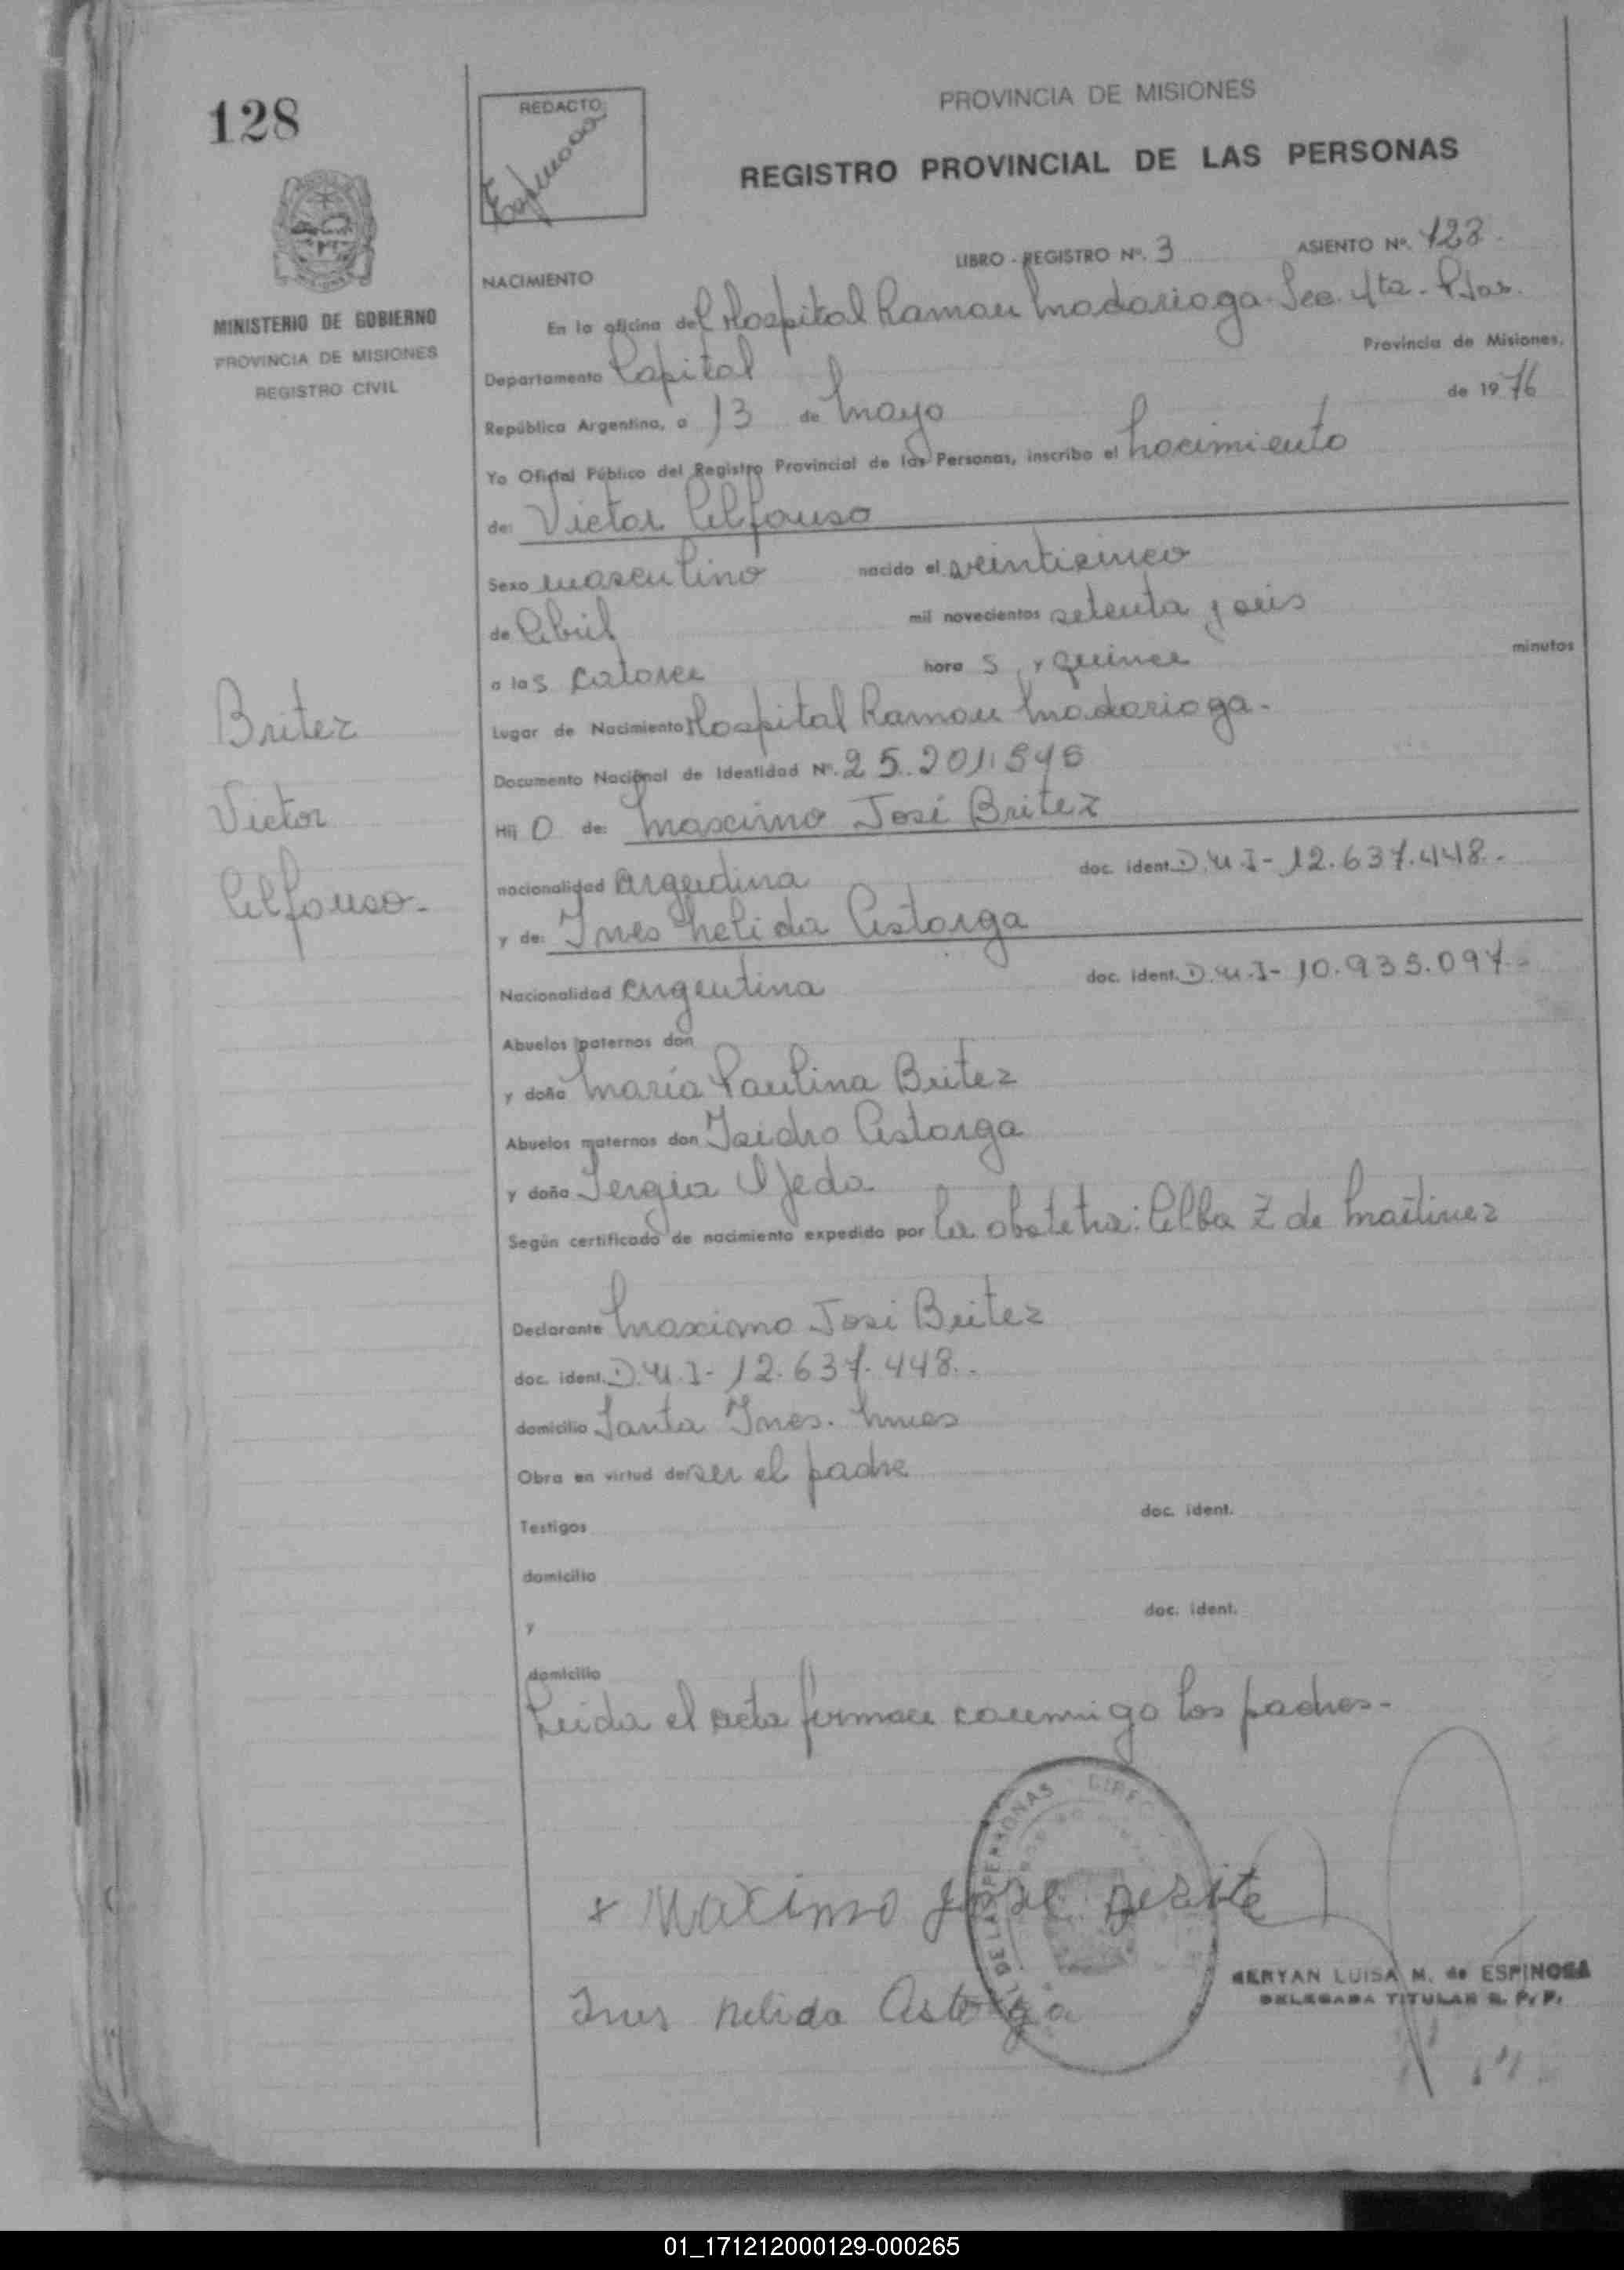 128
REDACTO
Espinosa
PROVINCIA DE MISIONES
REGISTRO PROVINCIAL DE LAS PERSONAS
MINISTERIO DE GOBIERNO
PROVINCIA DE MISIONES
REGISTRO CIVIL
LIBRO - REGISTRO Nº. 3 ASIENTO Nº. 128.
NACIMIENTO
En la oficina del Hospital Ramon Madariaga - Sec. 4ta - Pdas.
Departamento Capital Provincia de Misiones,
República Argentina, a 13 de mayo de 1976
Yo Oficial Público del Registro Provincial de las Personas, inscribo el nacimiento
de: Victor Alfonso
Sexo masculino nacido el veinticinco
de Abril mil novecientos setenta y seis
a las catorce hora s y quince minutos
Lugar de Nacimiento Hospital Ramon Madariaga -
Documento Nacional de Identidad Nº. 25.201.546
Hij o de: Maximo José Britez
nacionalidad argentina doc. ident. D.N.I - 12.637.448.-
y de: Ines Nelida Astorga
Nacionalidad argentina doc. ident. D.N.I - 10.935.097.-
Abuelos paternos don
y doña María Paulina Britez
Abuelos maternos don Isidro Astorga
y doña Sergia Ojeda
Según certificado de nacimiento expedido por la obstetra: Alba Z de Martinez
Declarante Maximo José Britez
doc. ident. D.N.I - 12.637.448.-
domicilio Santa Ines. Mnes
Obra en virtud de ser el padre
Testigos doc. ident.
domicilio
y doc. ident.
domicilio
Leida el acta firman conmigo los padres -
Britez
Victor
Alfonso -
+ Maximo jose
Ines nelida Astorga
MERYAN LUISA M. de ESPINOSA
DELEGADA TITULAR R. P. P.
01_171212000129-000265